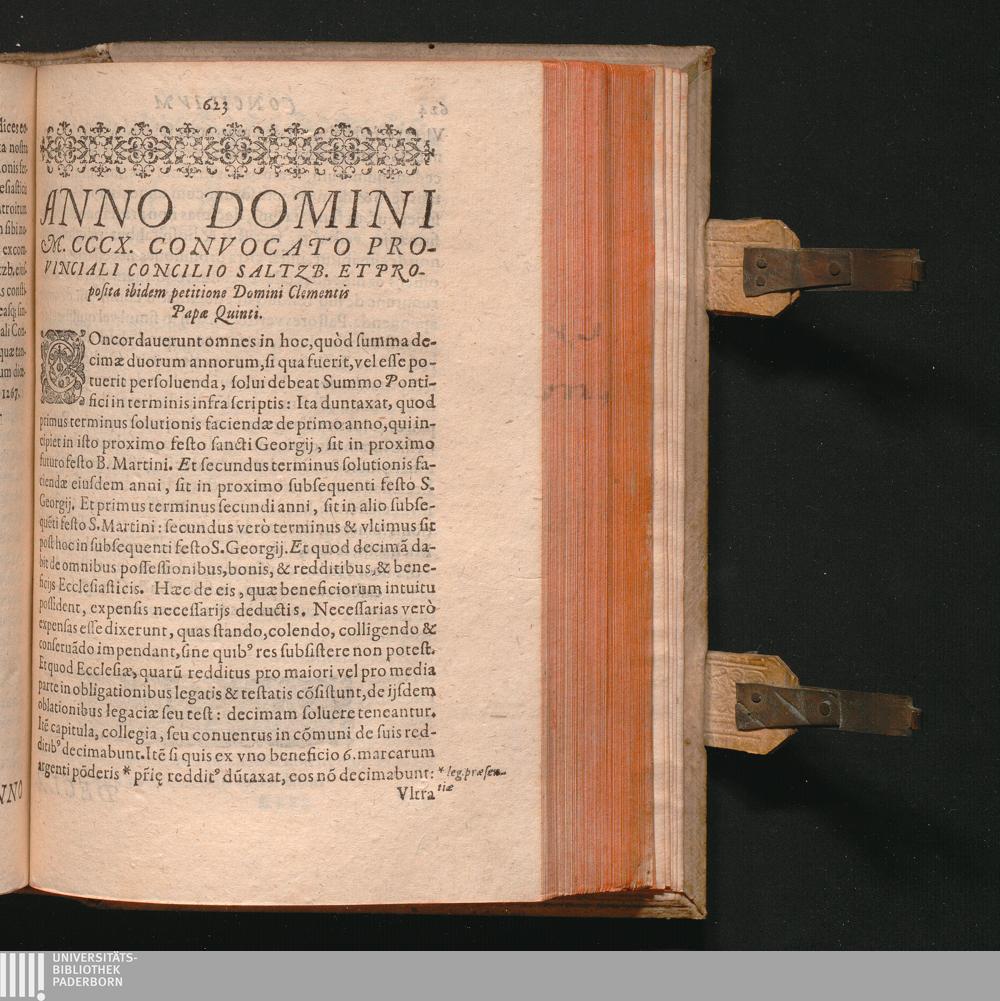 623
ANNO DOMINI
M. CCCX. CONVOCATO PRO-
VINCIALI CONCILIO SALTZB. ET PRO-
poſita ibidem petitione Domini Clementis
Papæ Quinti.
COncordauerunt omnes in hoc, quòd ſumma de-
cimæ duorum annorum, ſi qua fuerit, vel eſſe po-
tuerit perſoluenda, ſolui debeat Summo Ponti-
fici in terminis infra ſcriptis: Ita duntaxat, quod
primus terminus ſolutionis faciendæ de primo anno, qui in-
cipiet in iſto proximo feſto ſancti Georgij, ſit in proximo
futuro feſto B. Martini. Et ſecundus terminus ſolutionis fa-
ciendæ eiuſdem anni, ſit in proximo ſubſequenti feſto S.
Georgij. Et primus terminus ſecundi anni, ſit in alio ſubſe-
quẽti feſto S. Martini: ſecundus verò terminus & vltimus ſit
poſt hoc in ſubſequenti feſto S. Georgij. Et quod decimã da-
bit de omnibus poſſeſſionibus, bonis, & redditibus, & bene-
ficijs Eccleſiaſticis. Hæc de eis, quæ beneficiorum intuitu
poſſident, expenſis neceſſarijs deductis. Neceſſarias verò
expenſas eſſe dixerunt, quas ſtando, colendo, colligendo &
conſeruãdo impendant, ſine quibꝰ res ſubſiſtere non poteſt.
Et quod Eccleſiæ, quarũ redditus pro maiori vel pro media
parte in obligationibus legatis & teſtatis cõſiſtunt, de ijſdem
oblationibus legaciæ ſeu teſt: decimam ſoluere teneantur.
Itẽ capitula, collegia, ſeu conuentus in cõmuni de ſuis red-
ditibꝰ decimabunt. Itẽ ſi quis ex vno beneficio 6. marcarum
argenti põderis * pr̃ię redditꝰ dũtaxat, eos nõ decimabunt:
* leg. præſen-
tiæ
Vltra
dices eo-
1267.
UNIVERSITÄTS-
BIBLIOTHEK
PADERBORN